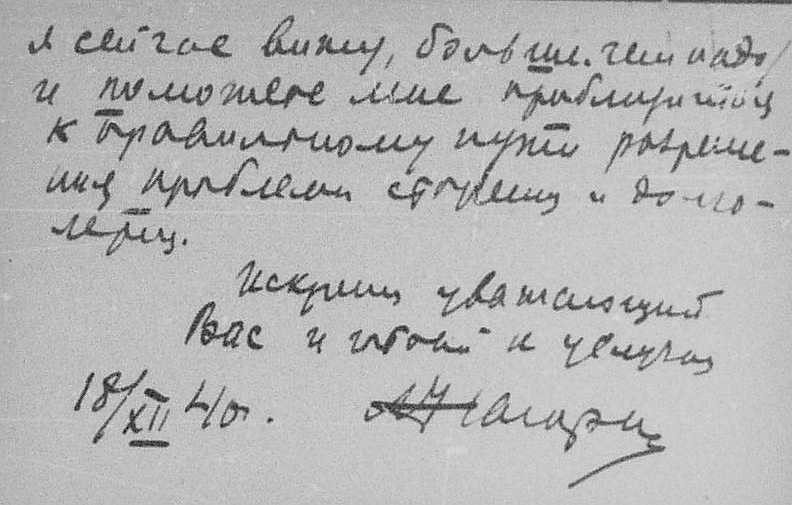 я сейчас вижу, больше, чем надо
и поможете мне приблизиться
к правильному пути разреше-
ния проблемы старения и долго-
летия.
Искренно уважающий
Вас и готовый к услугам
18/XII 40г.